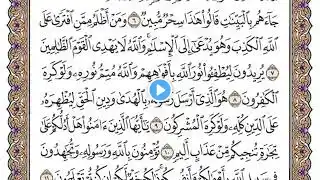 جَاءَهُم بِالْبَيِّنَاتِ قَالُوا هَٰذَا سِحْرٌ مُّبِينٌ ٦ وَمَنْ أَظْلَمُ مِمَّنِ افْتَرَىٰ عَلَى
اللَّهِ الْكَذِبَ وَهُوَ يُدْعَىٰ إِلَى الْإِسْلَامِ وَاللَّهُ لَا يَهْدِي الْقَوْمَ الظَّالِمِينَ
٧ يُرِيدُونَ لِيُطْفِئُوا نُورَ اللَّهِ بِأَفْوَاهِهِمْ وَاللَّهُ مُتِمُّ نُورِهِ وَلَوْ كَرِهَ
الْكَافِرُونَ ٨ هُوَ الَّذِي أَرْسَلَ رَسُولَهُ بِالْهُدَىٰ وَدِينِ الْحَقِّ لِيُظْهِرَهُ
عَلَى الدِّينِ كُلِّهِ وَلَوْ كَرِهَ الْمُشْرِكُونَ ٩ يَا أَيُّهَا الَّذِينَ آمَنُوا هَلْ أَدُلُّكُمْ عَلَىٰ
تِجَارَةٍ تُنجِيكُم مِّنْ عَذَابٍ أَلِيمٍ ١٠ تُؤْمِنُونَ بِاللَّهِ وَرَسُولِهِ وَتُجَاهِدُونَ